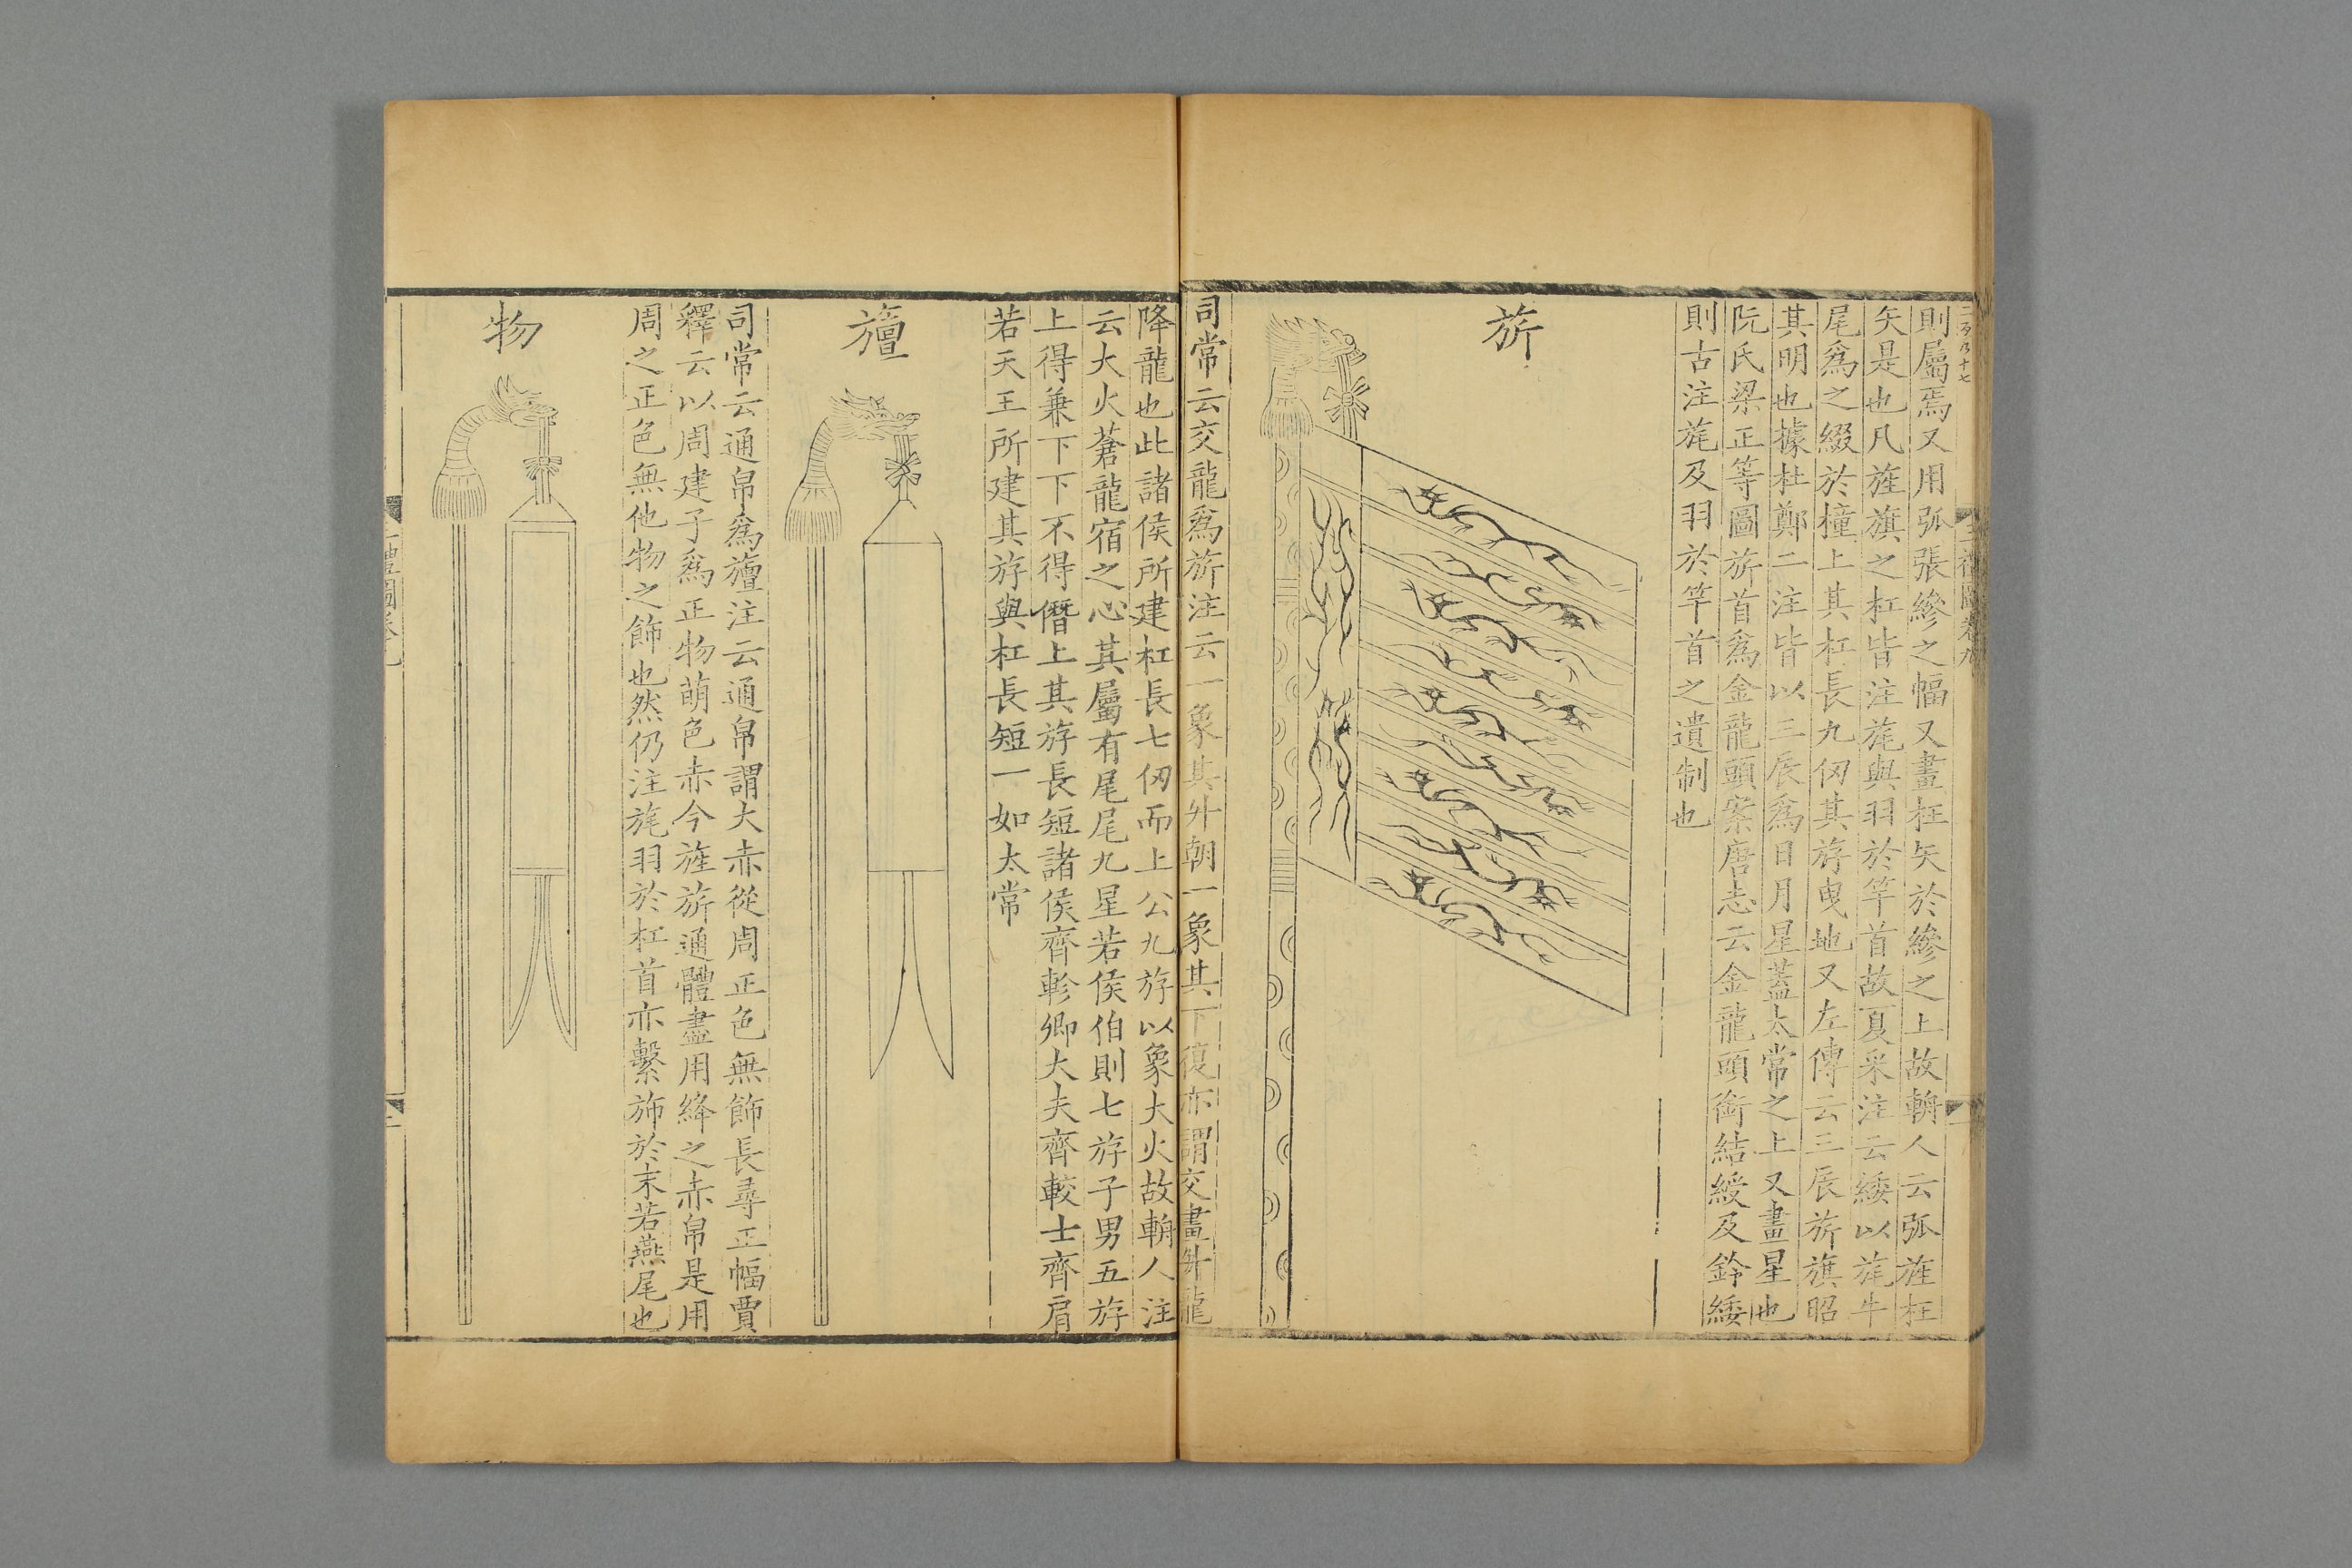 則屬焉又用弧張縿之幅又畫枉矢於縿之上故輈人云弧旌枉
矢是也凡旌旗之杠皆注旄與羽於竿首故夏采注云緌以旄牛
尾爲之綴於橦上其杠長九仞其斿曳地又左傳云三辰旂旗昭
其明也據杜鄭二注皆以三辰爲日月星蓋太常之上又畫星也
阮氏梁正等圖旂首爲金龍頭案唐志云金龍頭銜結綬及鈴緌
則古注旄及羽於竿首之遺制也
旂
司常云交龍爲旂注云一象其升朝一象其下復亦謂交畫升龍
降龍也此諸侯所建杠長七仞而上公九斿以象大火故輈人注
云大火蒼龍宿之心其屬有尾尾九星若侯伯則七斿子男五斿
上得兼下下不得僭上其斿長短諸侯齊軫卿大夫齊較士齊肩
若天王所建其斿與杠長短一如太常
旜
司常云通帛爲旜注云通帛謂大赤從周正色無飾長尋正幅賈
釋云以周建子爲正物萌色赤今旌旂通體盡用絳之赤帛是用
周之正色無他物之飾也然仍注旄羽於杠首亦繫斾於末若燕尾也
物